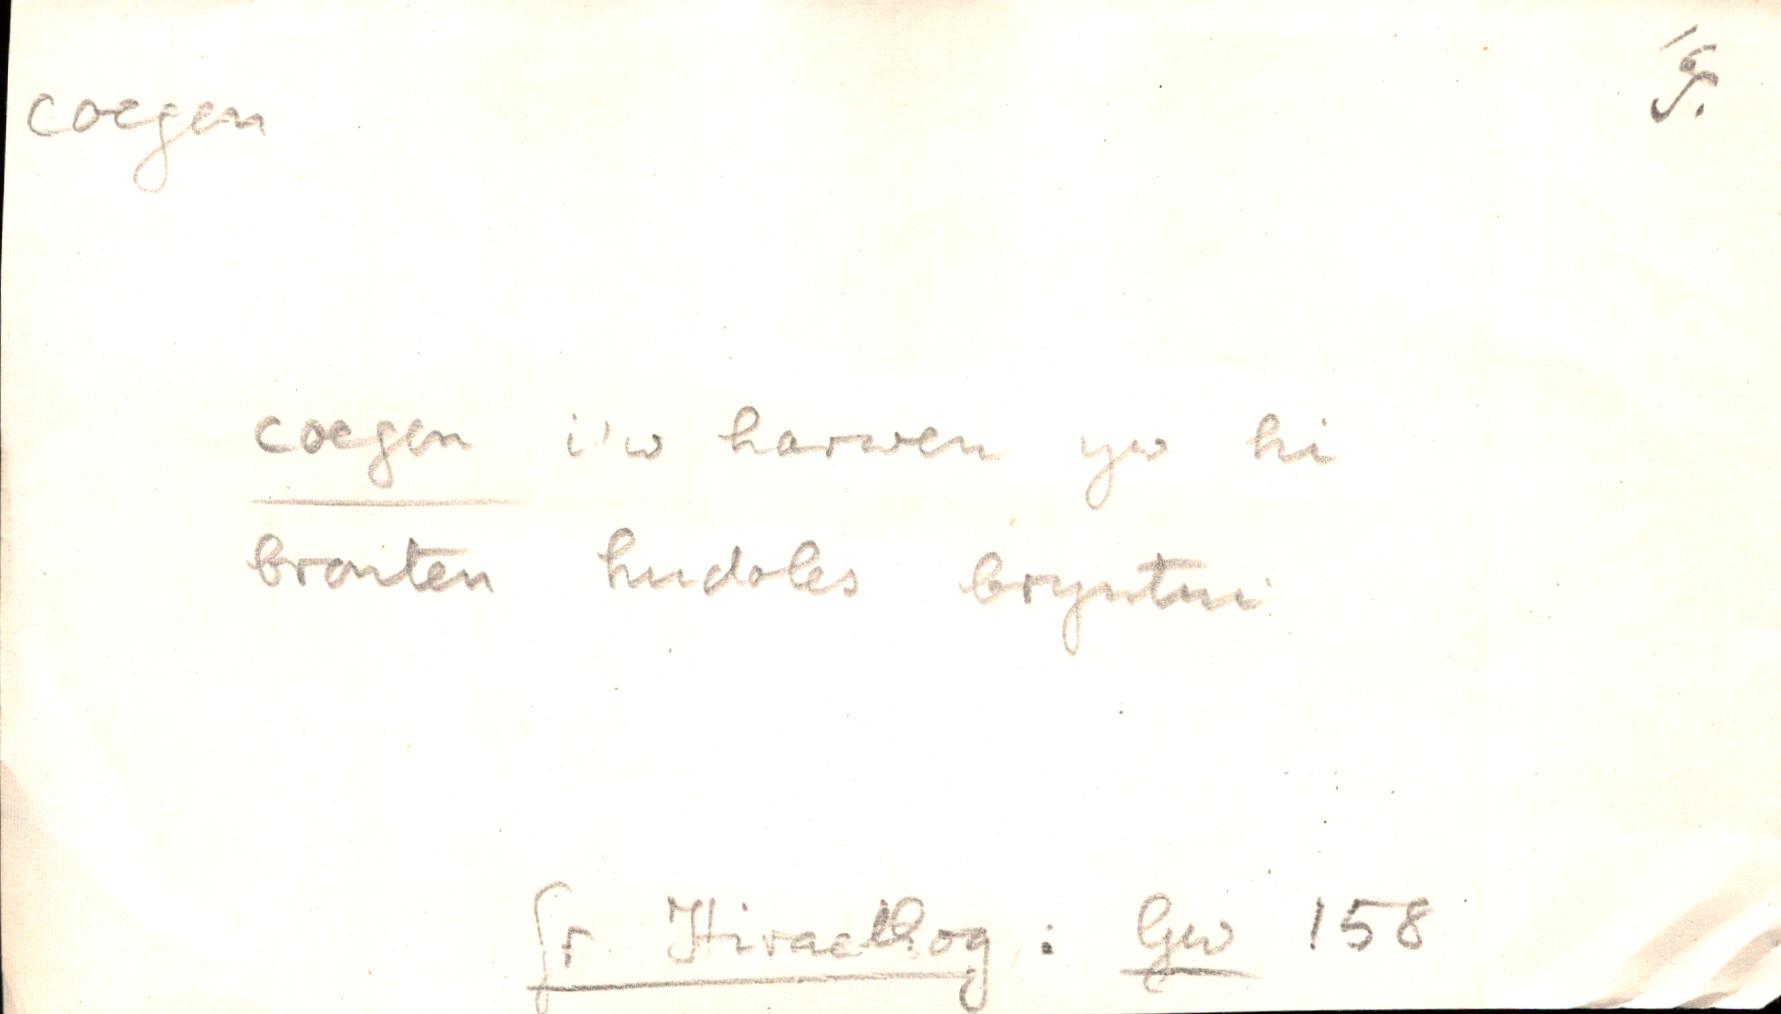 coegen
coegen i'w harwen yw hi
bronten hudoles bryntni
Gr Hiraethog : Gw 158